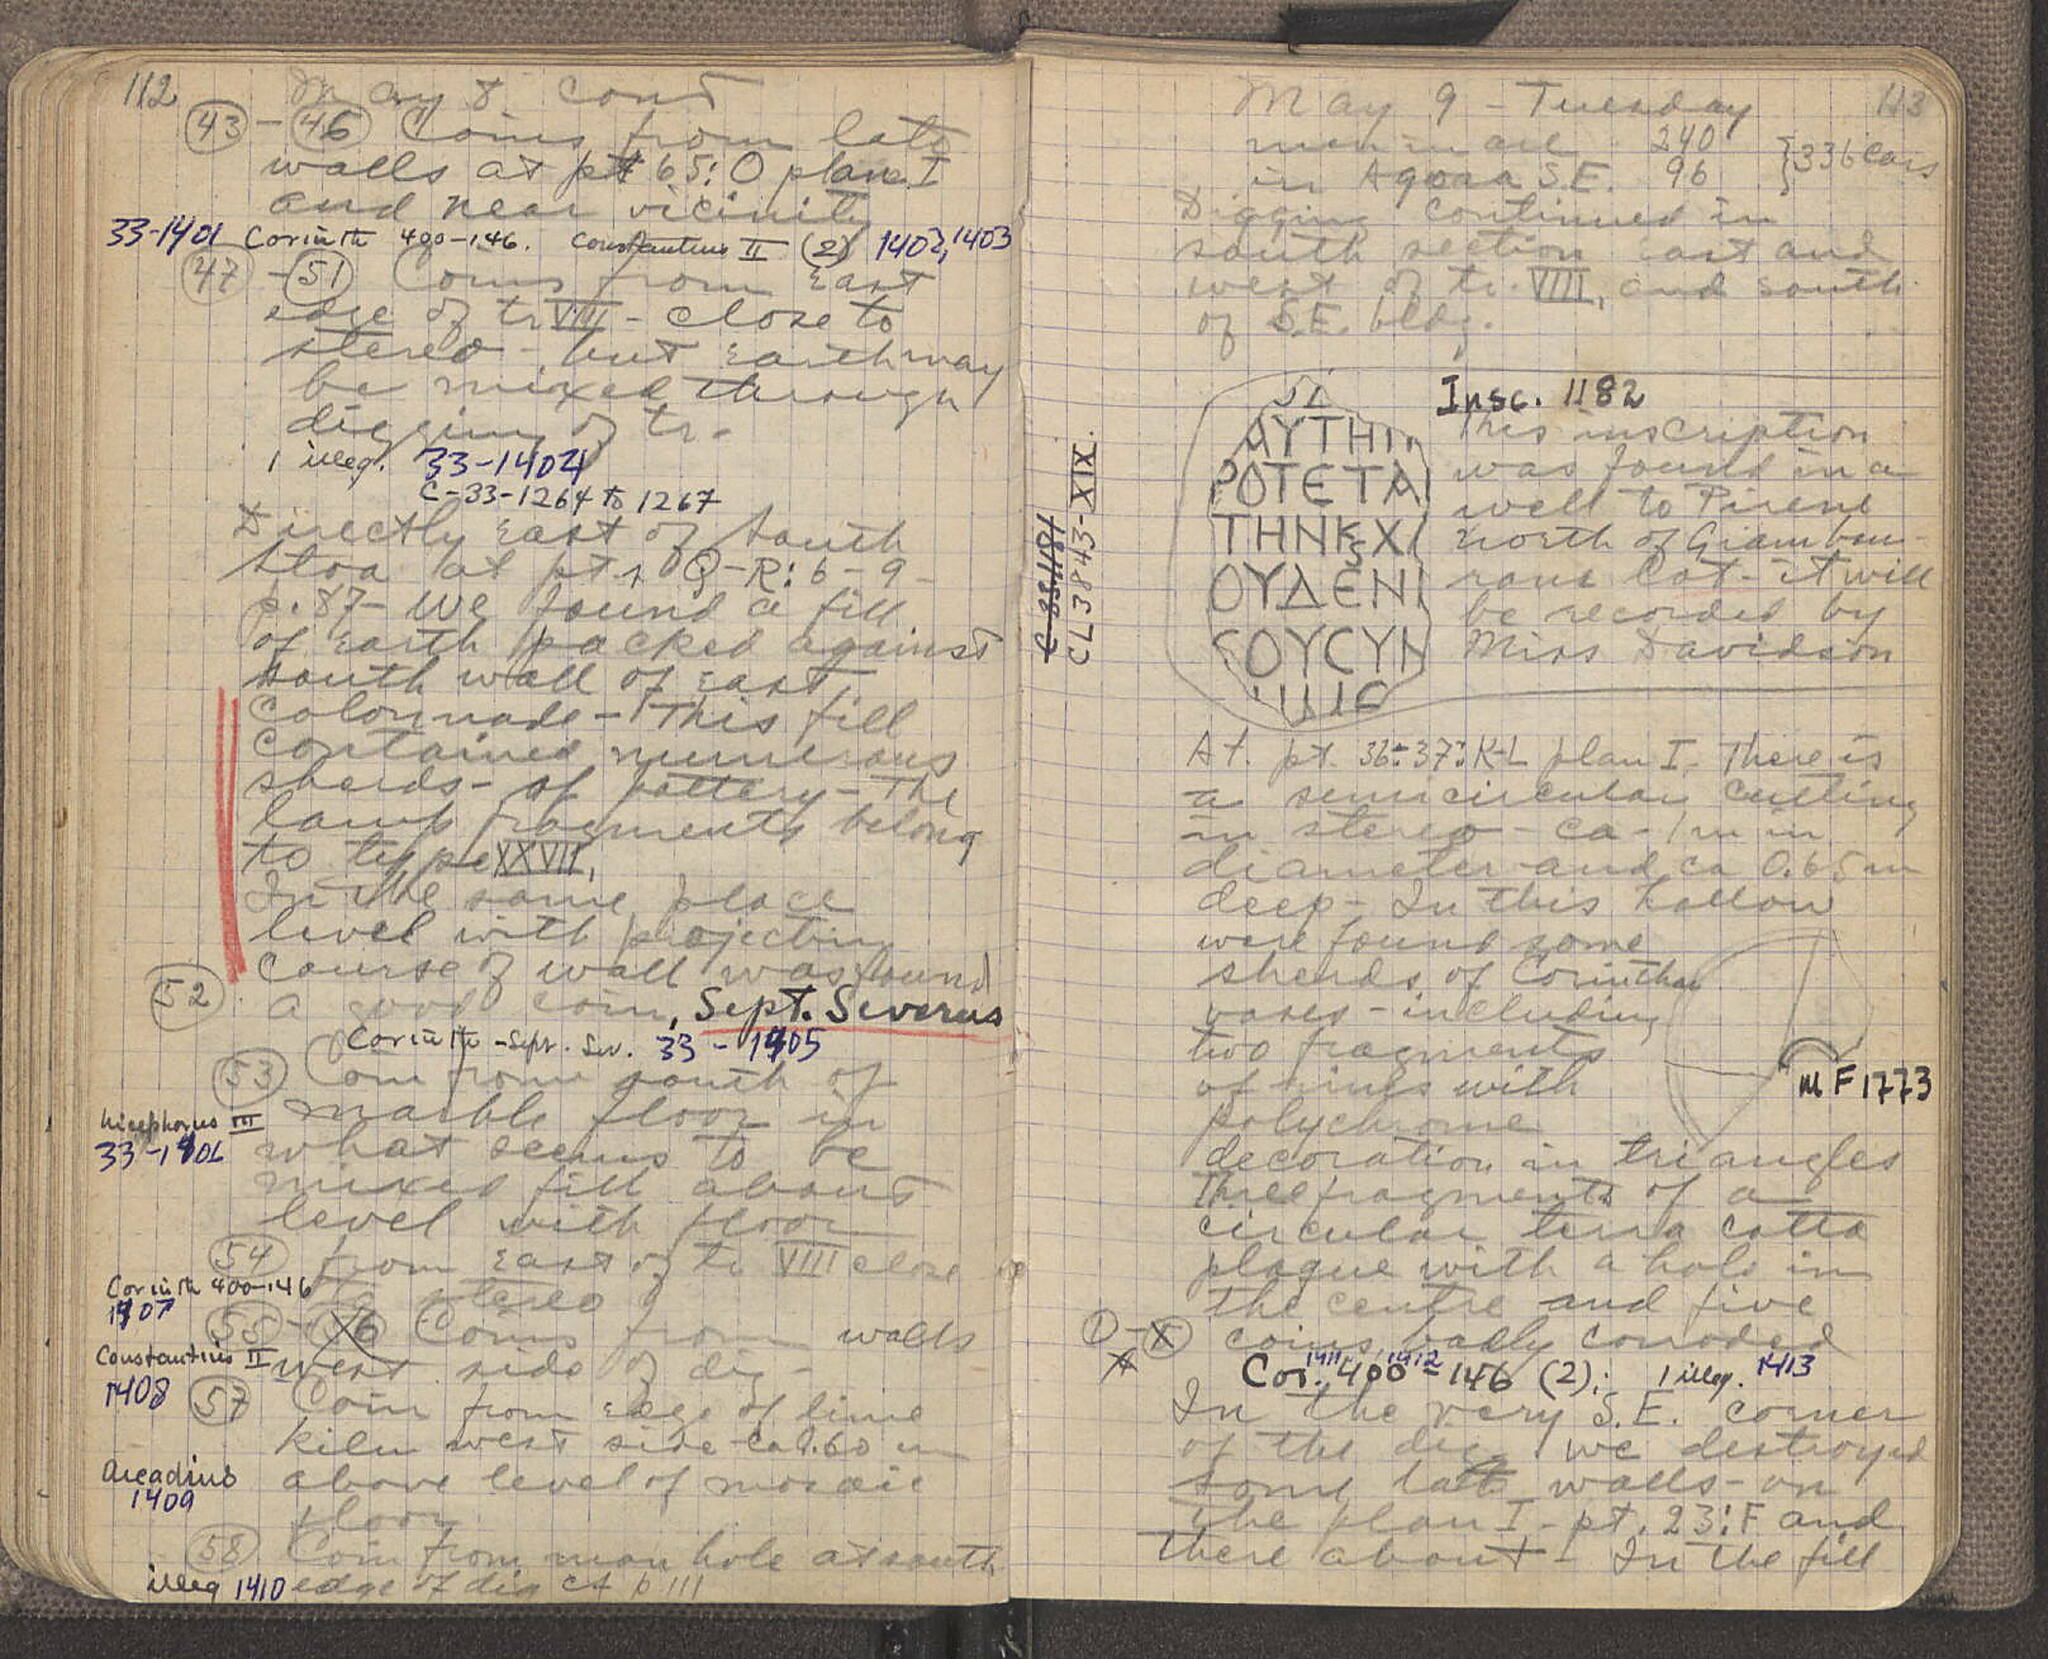 112
May 8 cont
43 - 46 Coins from late
walls at pt 65:O plan I
and near vicinity
33-1401 Corinth 400-146. Constantius II (2) 1402, 1403
47 - 51 Coins from East
edge of tr VIII - close to
stereo - but earth may
be mixed through
digging of tr.
1 illeg. 33-1404
C-33-1264 to 1267
Directly east of South
Stoa at pt Q-R: 6-9 -
p. 87 - we found a fill
of earth packed against
south wall of east
colonnade - This fill
contained numerous
sherds - of pottery - The
lamp fragments belong
to type XXVII.
In the same place
level with projecting
course of wall was found
52 a good coin, Sept. Severus
Corinth - Sept. Sev. 33-1405
53 Coin from south of
marble floor in
Nicephorus III
33-1406 what seems to be
mixed fill about
level with floor
54 from East of tr VIII close
to stereo
Corinth 400-146
1407
55 - 56 Coins from walls
west side of dig -
Constantius II
1408
57 Coin from edge of lime
kiln west side - ca 0.60 m
above level of mosaic
floor
Arcadius
1409
58 Coin from man hole at south
edge of dig cf p 111
illeg 1410
113
May 9 - Tuesday
men in all 240
in Agora S.E. 96 } 336 cars
Digging continued in
south section east and
west of tr. VIII, and south
of S.E. bldg.
Insc. 1182
ΑΥΤΗΙ
ΡΟΤΕΤΑ
ΤΗΝΚΣΧ
ΟΥΔΕΝΙ
ΟΥCΥΝ
This inscription
was found in a
well to Pirene
north of Giambou-
rani Lot - it will
be recorded by
Miss Davidson
C-33-1181
CL 3843-XIX.
At pt. 36-37: K-L plan I. There is
a semicircular cutting
in stereo - ca - 1 m in
diameter and ca 0.65 m
deep - In this hollow
were found some
sherds of Corinthian
vases - including
two fragments
of rims with
polychrome
decoration in triangles
Three fragments of a
circular terra cotta
plaque with a hole in
the centre and five
MF 1773
1 - 5 coins badly corroded
Cor. 400-146 (2); 1 illeg. 1413
1411, 1412
In the very S.E. corner
of the dig we destroyed
some late walls - on
the plan I - pt. 23:F and
there about - In the fill